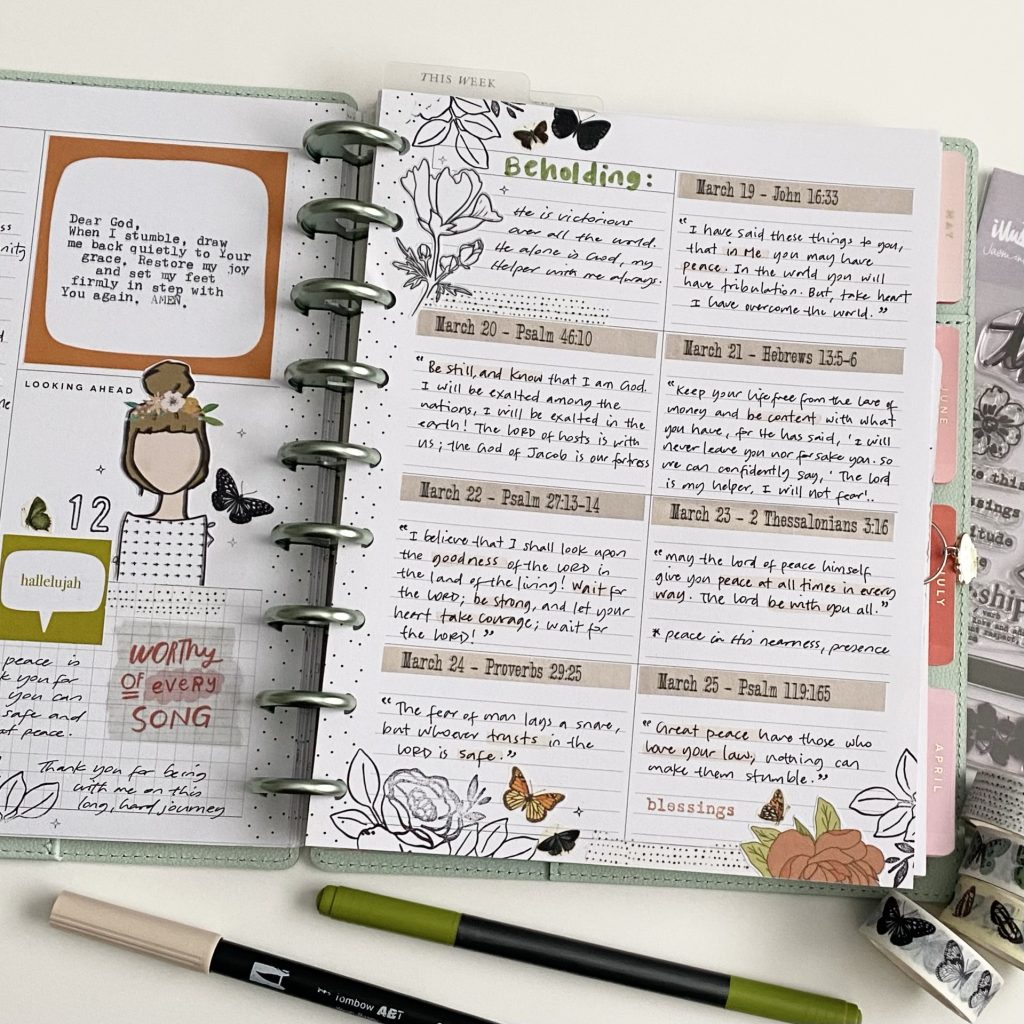 THIS WEEK
Dear God,
When I stumble, draw
me back quietly to Your
grace. Restore my joy
and set my feet
firmly in step with
You again. AMEN.
LOOKING AHEAD
12
hallelujah
WORTHY
OF eveRY
SONG
peace is
k you for
you can
safe and
of peace.
Thank you for being
with me on this
long, hard journey
Beholding:
He is victorious
over all the world.
He alone is God, my
Helper with me always.
March 19 - John 16:33
"I have said these things to you,
that in Me you may have
peace. In the world you will
have tribulation. But, take heart
I have overcome the world."
March 20 - Psalm 46:10
"Be still, and know that I am God.
I will be exalted among the
nations, I will be exalted in the
earth! The LORD of hosts is with
us; the God of Jacob is our fortress
March 21 - Hebrews 13:5-6
"Keep your life free from the love of
money and be content with what
you have, for He has said, 'I will
never leave you nor forsake you. so
we can confidently say, 'The lord
is my helper, I will not fear'..
March 22 - Psalm 27:13-14
"I believe that I shall look upon
the goodness of the LORD in
the land of the living! Wait for
the LORD; be strong, and let your
heart take courage; wait for
the LORD!"
March 23 - 2 Thessalonians 3:16
"may the lord of peace himself
give you peace at all times in every
way. The lord be with you all."
* peace in His nearness, presence
March 24 - Proverbs 29:25
"The fear of man lays a snare,
but whoever trusts in the
LORD is safe."
March 25 - Psalm 119:165
"Great peace have those who
love your law, nothing can
make them stumble."
blessings
MAY
JUNE
JULY
APRIL
Tombow ABT